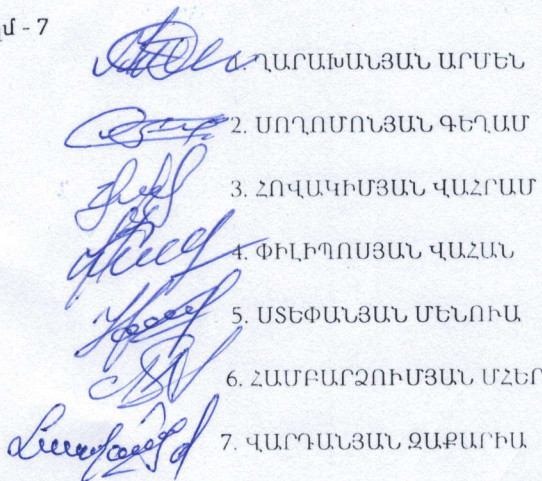 մ - 7
1. ՂԱՐԱԽԱՆՅԱՆ ԱՐՄԵՆ
2. ՍՈՂՈՄՈՆՅԱՆ ԳԵՂԱՄ
3. ՀՈՎԱԿԻՄՅԱՆ ՎԱՀՐԱՄ
4. ՓԻԼԻՊՈՍՅԱՆ ՎԱՀԱՆ
5. ՍՏԵՓԱՆՅԱՆ ՄԵՆՈՒԱ
6. ՀԱՄԲԱՐՁՈՒՄՅԱՆ ՄՀԵՐ
7. ՎԱՐԴԱՆՅԱՆ ԶԱՔԱՐԻԱ